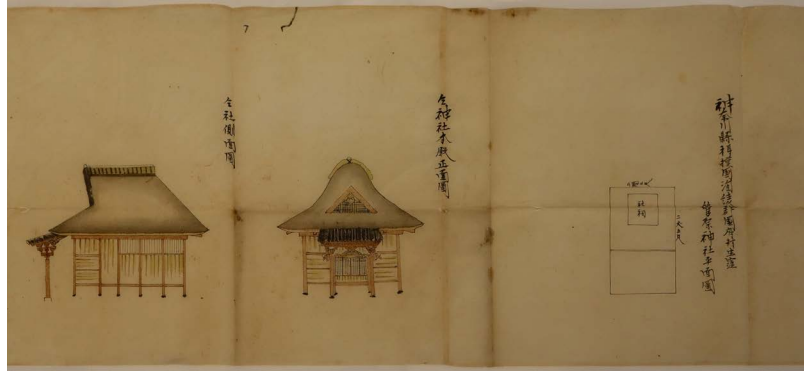 神奈川縣相模國淘綾郡國府村生澤
神社平面圖
仝神社本殿正面圖
仝社側面圖